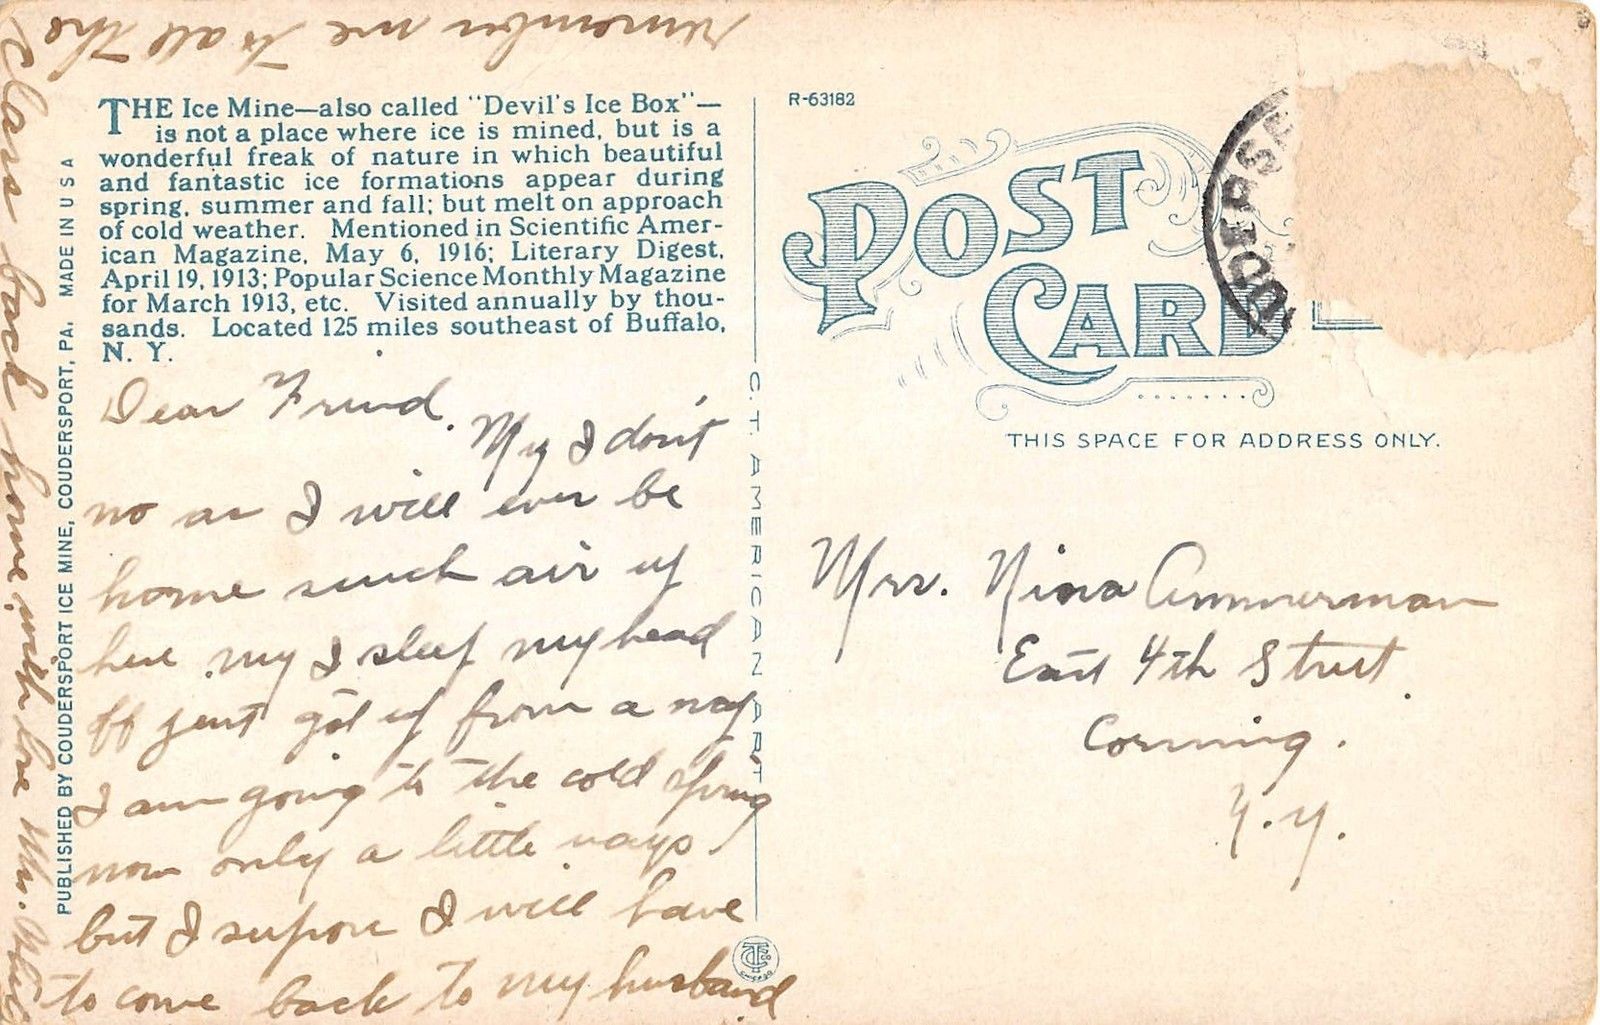 THE Ice Mine—also called "Devil's Ice Box"—
is not a place where ice is mined, but is a
wonderful freak of nature in which beautiful
and fantastic ice formations appear during
spring, summer and fall; but melt on approach
of cold weather. Mentioned in Scientific Amer-
ican Magazine, May 6, 1916; Literary Digest,
April 19, 1913; Popular Science Monthly Magazine
for March 1913, etc. Visited annually by thou-
sands. Located 125 miles southeast of Buffalo,
N. Y.
PUBLISHED BY COUDERSPORT ICE MINE, COUDERSPORT, PA. MADE IN U S A
Dear Friend.
My I don't
no as I will ever be
home such air up
here my I sleep my head
off just got up from a nap
I am going to the cold spring
now only a little ways
but I supose I will have
to come back to my husband
remember me to all the
class back home with love Mrs.
C. T. AMERICAN ART
R-63182
POST
CARD
COUDERS
THIS SPACE FOR ADDRESS ONLY.
Mrs. Nina Ammerman
East 4th Street.
Corning.
N.Y.